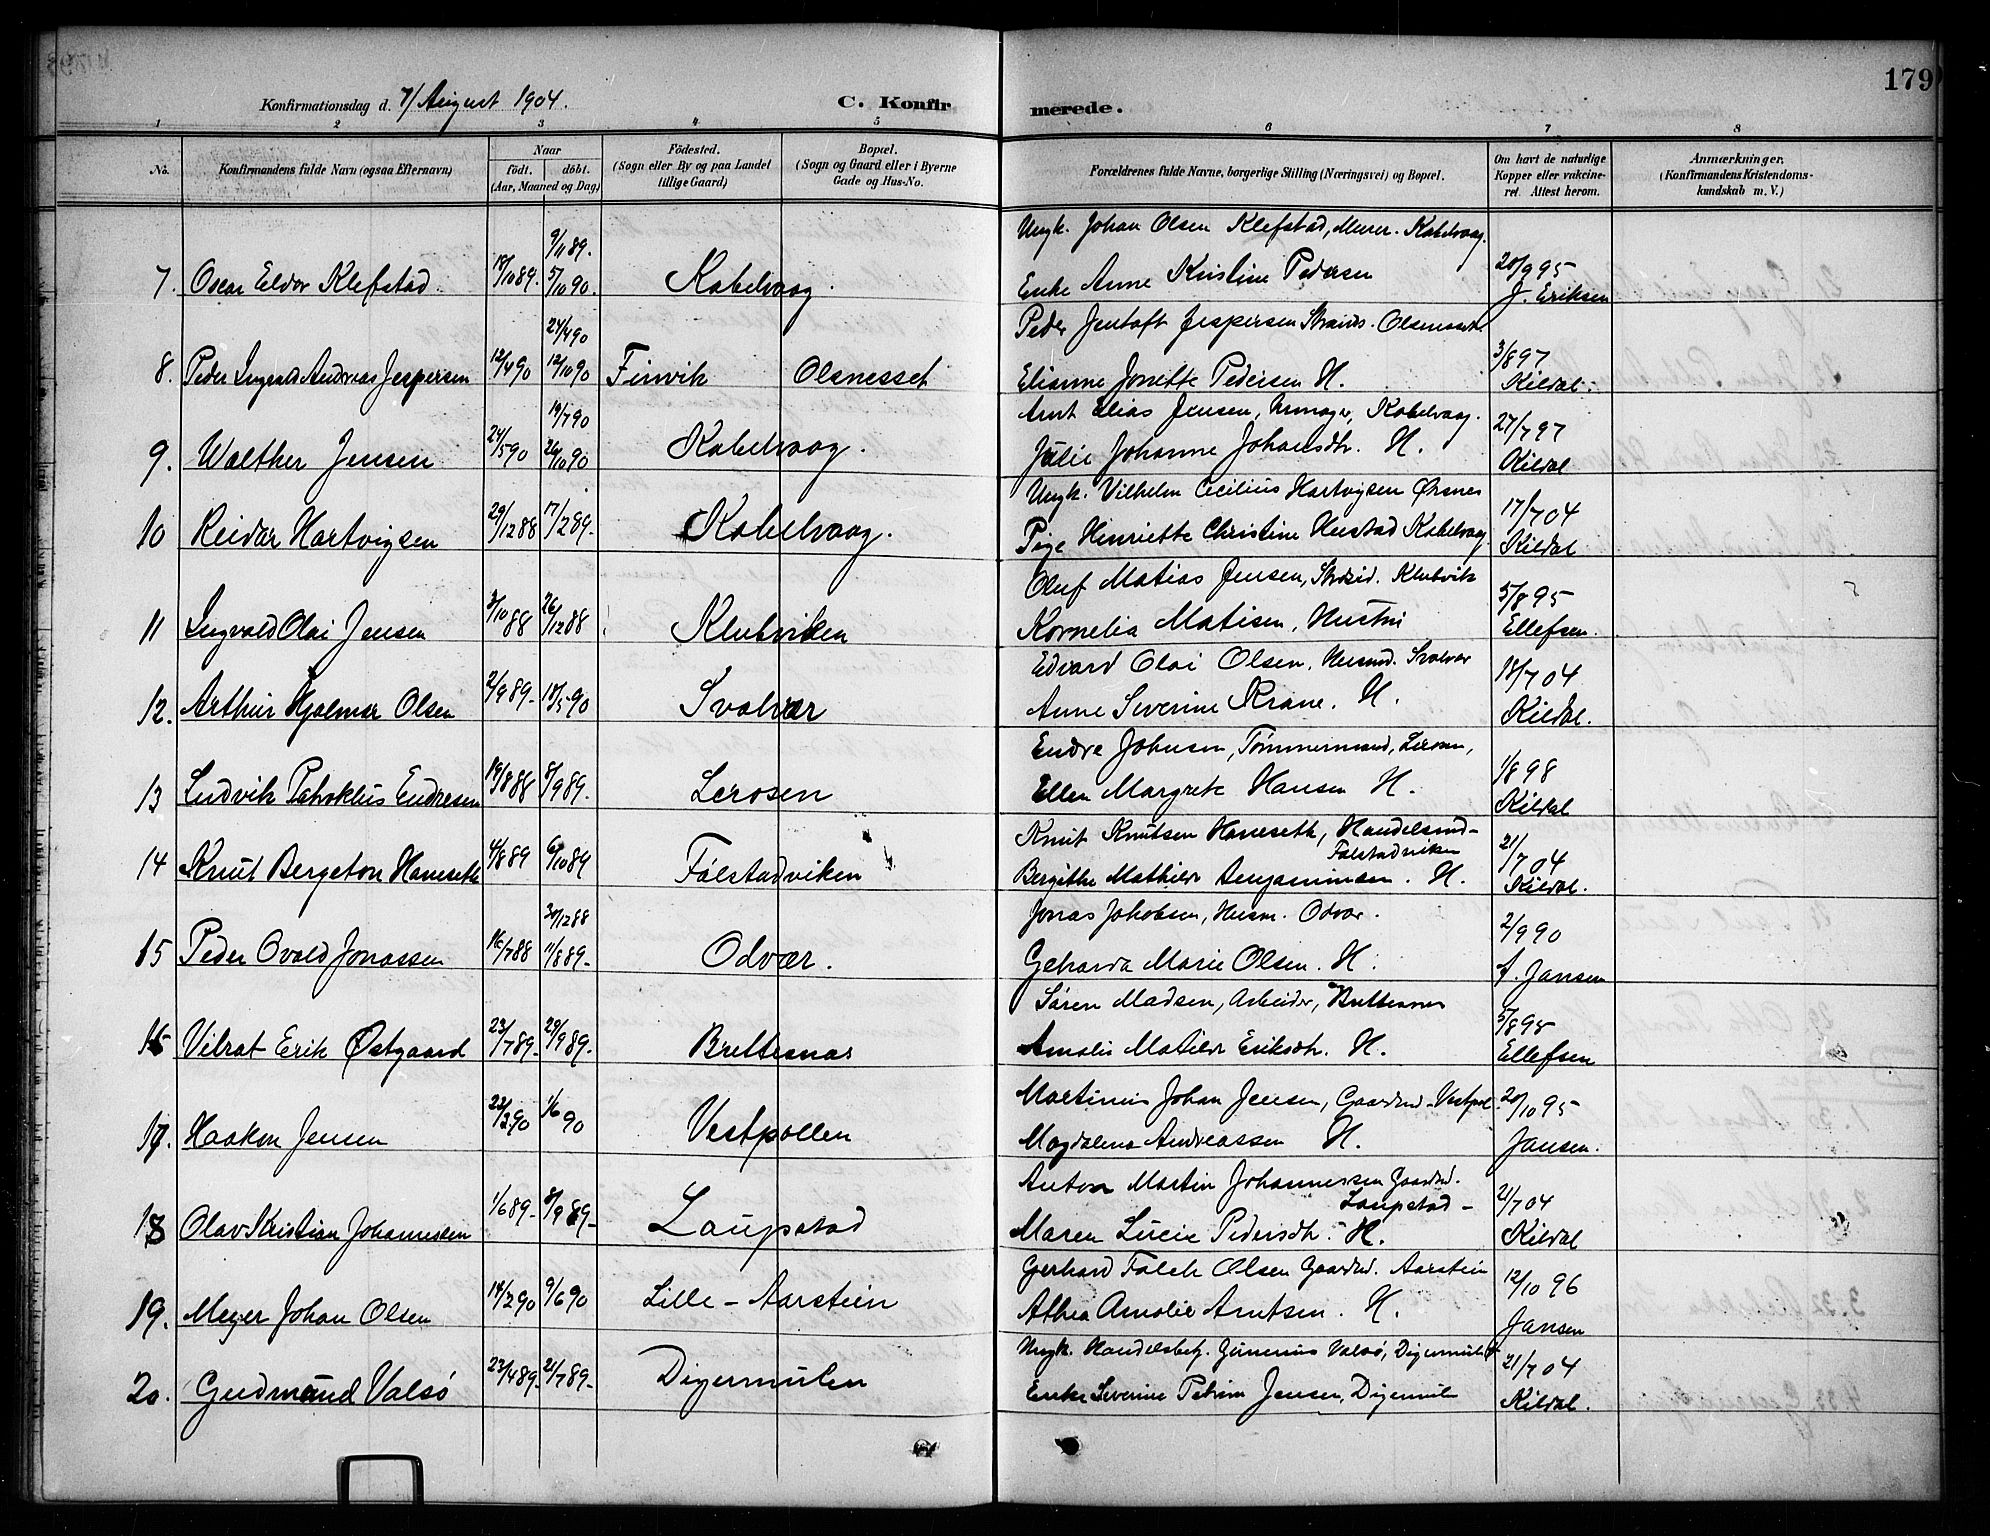 179
Konfirmationsdag d. 7/ August 1904.
C. Konfir
merede.
1 2 3 4 5 6 7 8
No.
Konfirmandens fulde Navn (ogsaa Efternavn)
Naar
födt. döbt.
(Aar, Maaned og Dag)
Födested.
(Sogn eller By og paa Landet
tillige Gaard)
Bopæl.
(Sogn og Gaard eller i Byerne
Gade og Hus-No.
Forældrenes fulde Navne, borgerlige Stilling (Næringsvei) og Bopæl.
Om havt de naturlige
Kopper eller vakcine-
ret. Attest herom.
Anmærkninger.
(Konfirmandens Kristendoms-
kundskab m. V.)
Ungk. Johan Olsen Klefstad, Murer. Kabelvaag.
9/11 89.
7. Oscar Eldor Klefstad. 18/10 89. 5/10 90. Kabelvaag. Enke Anne Kristine Pedersen 20/9 95
J. Eriksen
24/4 90 Peder Jentoft Jespersen Olsnesset
8. Peder Ingvald Andreas Jespersen 12/4 90 12/10 90 Finvik Olsnesset Elianne Jonette Pedersen H. 3/8 97
Kildal.
19/7 90 Arnt Elias Jensen, Urmager, Kabelvaag.
9. Walther Jensen 24/5 90 26/10 90 Kabelvaag. Julie Johanne Johansdtr. H. 27/7 97
Kildal
Ungk. Vilhelm Cecilius Hartvigsen Ørsnes
10 Reidar Hartvigsen 29/12 88 17/2 89. Kabelvaag. Pige Henriette Christine Hustad Kabelvaag 17/7 04
Kildal
Oluf Matias Jensen, Strdsid. Klubvik
11 Ingvald Olai Jensen 3/10 88 26/12 88 Klubviken Kornelia Matisen, Hustru 5/8 95
Ellefsen.
Edvard Olai Olsen, Husmd. Svolvær
12. Arthur Hjalmar Olsen 2/9 89. 18/5 90 Svolvær Anne Severine Krane. H. 18/7 04
Kildal.
Endre Johnsen, Tømmermand, Lerosen,
13 Ludvik Patroklus Endresen 19/8 88 8/9 89. Lerosen Ellen Margrete Hansen H. 1/8 98
Kildal
Knut Knutsen Haneseth, Handelsmd-
Falstadviken
14 Knut Bergeton Haneseth 4/8 89 6/10 89 Falstadviken Bergithe Mathilde Benjaminsen. H. 21/7 04
Kildal.
30/12 88 Jonas Jakobsen, Husm. Odvær.
15 Peder Ovald Jonassen 16/7 88 11/8 89. Odvær. Geharda Marie Olsen. H. 2/9 90
A. Jansen
Søren Madsen, Arbeider, Brettesnes
16 Vilrat Erik Østgaard 23/7 89. 29/9 89. Brettesnæs Amalie Matilde Eriksdtr. H. 5/8 95
Ellefsen
Martinus Johan Jensen, Gaardmd. Vestpol.
17. Haakon Jensen 22/3 90 1/6 90 Vestpollen Magdalena Andreassen H. 20/10 95
Jansen.
Anton Martin Johannessen Gaardmd.
Laupstad -
18 Olav Kristian Johannessen 1/6 89. 8/9 89. Laupstad Maren Lucie Pedersdtr. H. 21/7 04
Kildal
Gerhard Falck Olsen Gaardmd. Aarstein
19. Meyer Johan Olsen 14/2 90 9/6 90 Lille-Aarstein Althea Amalie Arntsen. H. 12/10 96
Jansen
Ungk. Handelsbetj. Valsø, Digermulen
20. Gudmund Valsø 23/4 89. 21/7 89. Digermulen Enke Severine Petrine Jensen, Digermulen 21/7 04
Kildal.